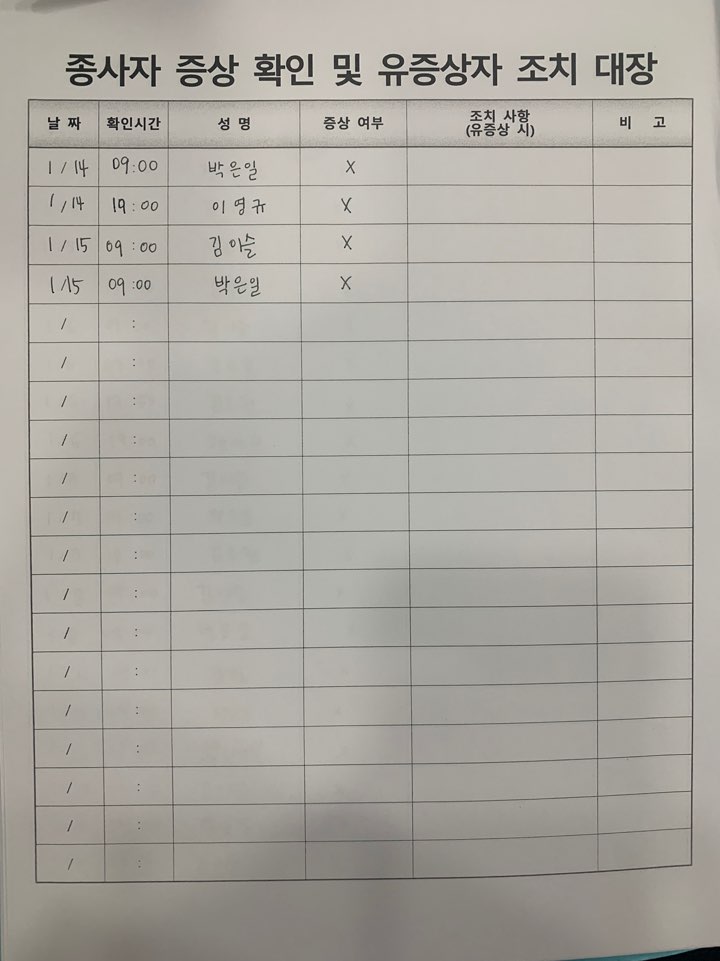 종사자 증상 확인 및 유증상자 조치 대장
날 짜 확인시간 성 명 증상 여부 조치 사항 (유증상 시) 비 고
1 / 14 09:00 박은일 X
1 / 14 19:00 이영규 X
1 / 15 09:00 김이슬 X
1 / 15 09:00 박은일 X
/ :
/ :
/ :
/ :
/ :
/ :
/ :
/ :
/ :
/ :
/ :
/ :
/ :
/ :
/ :